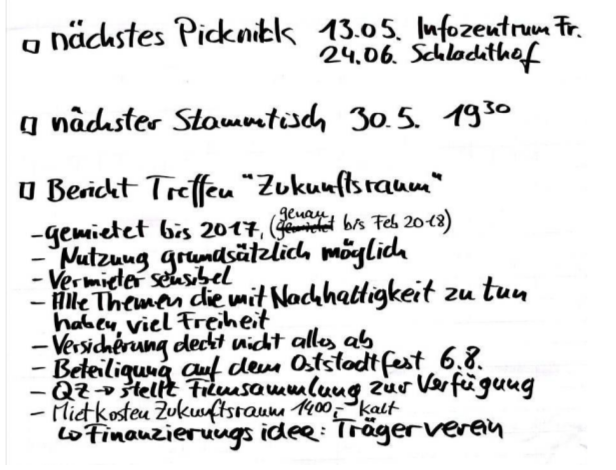 □ nächstes Picknikk 13.05. Infozentrum Fr.
24.06. Schlachthof
□ nächster Stammtisch 30.5. 19³⁰
□ Bericht Treffen "Zukunftsraum"
- gemietet bis 2017, (genau gemietet bis Feb 2018)
- Nutzung grundsätzlich möglich
- Vermieter sensibel
- Alle Themen die mit Nachhaltigkeit zu tun
haben, viel Freiheit
- Versicherung deckt nicht alles ab
- Beteiligung auf dem Oststadtfest 6.8.
- QZ → stellt Filmsammlung zur Verfügung
- Mietkosten Zukunftsraum 1400,- kalt
↳ Finanzierungsidee: Trägerverein